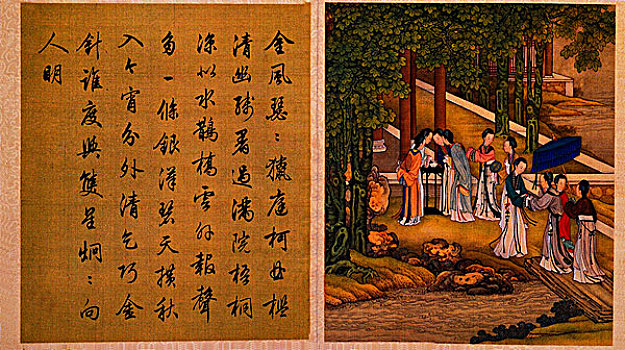 金風瑟〻獵庭柯曲檻
清幽殘暑過滿院梧桐
涼似水鵲橋雲外報聲
多一條銀漢碧天橫秋
入今宵分外清乞巧金
針誰度與雙星炯〻向
人明